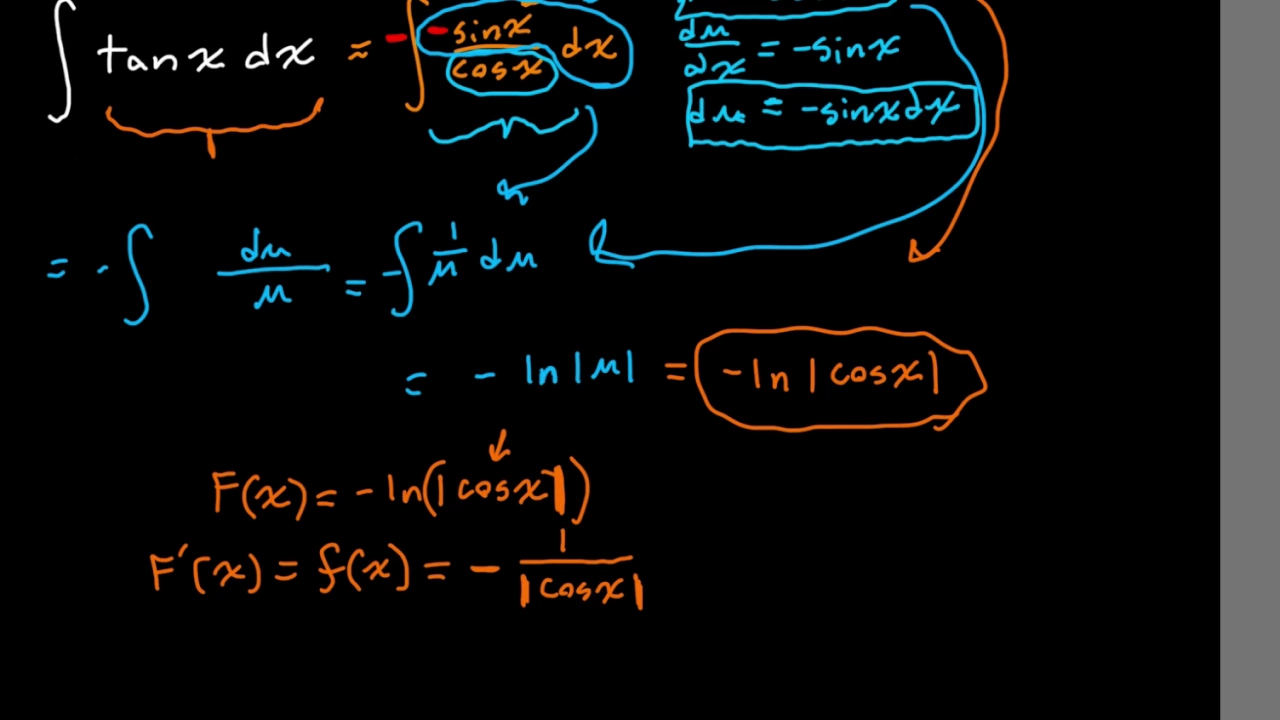 ∫ tanx dx = -∫ -sinx/cosx dx
du/dx = -sinx
du = -sinxdx
= -∫ du/u = -∫ 1/u du
= - ln|u| = -ln|cosx|
F(x) = -ln(|cosx|)
F'(x) = f(x) = - 1/|cosx|